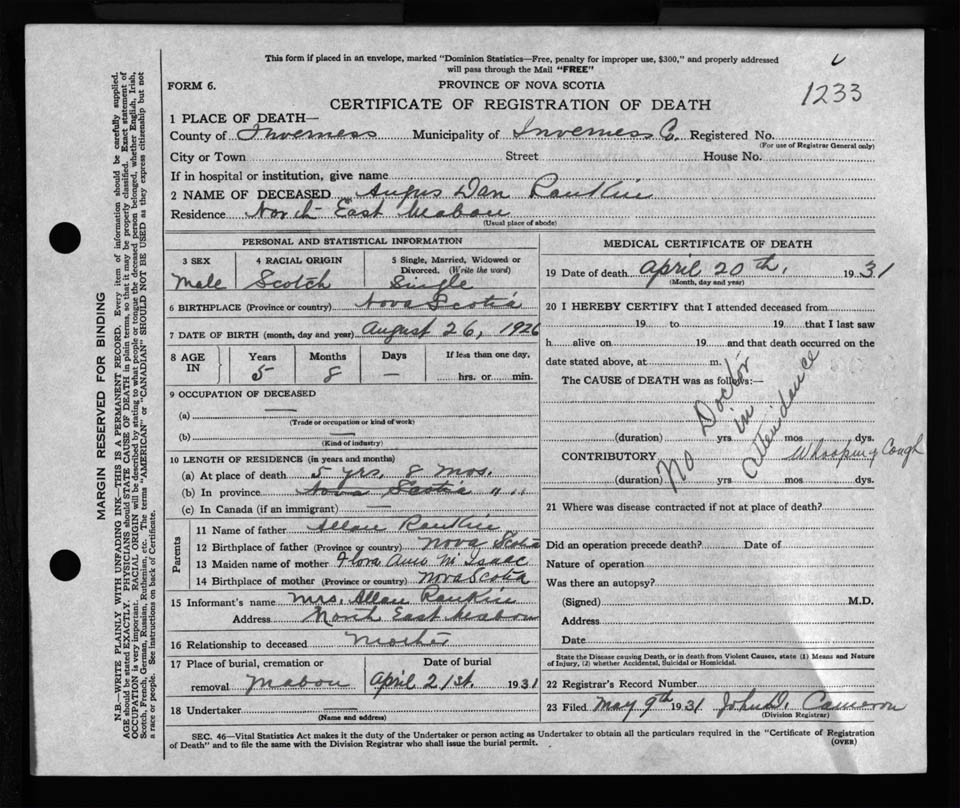 This form if placed in an envelope, marked "Dominion Statistics—Free, penalty for improper use, $300," and properly addressed
will pass through the Mail "FREE"
FORM 6.
PROVINCE OF NOVA SCOTIA
1233
CERTIFICATE OF REGISTRATION OF DEATH
1 PLACE OF DEATH—
County of Inverness Municipality of Inverness Co. Registered No.
(For use of Registrar General only)
City or Town Street House No.
If in hospital or institution, give name
2 NAME OF DECEASED Angus Dan Rankin
Residence North East Mabou
(Usual place of abode)
PERSONAL AND STATISTICAL INFORMATION
3 SEX 4 RACIAL ORIGIN 5 Single, Married, Widowed or
Divorced. (Write the word)
Male Scotch Single
6 BIRTHPLACE (Province or country) Nova Scotia
7 DATE OF BIRTH (month, day and year) August 26, 1926
8 AGE IN Years Months Days If less than one day,
5 8 — hrs. or min.
9 OCCUPATION OF DECEASED
(a) —
(Trade or occupation or kind of work)
(b) —
(Kind of industry)
10 LENGTH OF RESIDENCE (in years and months)
(a) At place of death 5 yrs, 8 mos.
(b) In province Nova Scotia " "
(c) In Canada (if an immigrant) —
Parents
11 Name of father Allan Rankin
12 Birthplace of father (Province or country) Nova Scotia
13 Maiden name of mother Flora Ann McIsaac
14 Birthplace of mother (Province or country) Nova Scotia
15 Informant's name Mrs. Allan Rankin
Address North East Mabou
16 Relationship to deceased Mother
17 Place of burial, cremation or Date of burial
removal Mabou April 21st. 1931
18 Undertaker —
(Name and address)
MEDICAL CERTIFICATE OF DEATH
19 Date of death April 20th, 1931
(Month, day and year)
20 I HEREBY CERTIFY that I attended deceased from
19 to 19 that I last saw
h alive on 19 and that death occurred on the
date stated above, at m.
The CAUSE of DEATH was as follows:—
No Doctor in attendance
(duration) yrs mos dys.
CONTRIBUTORY Whooping Cough
(duration) yrs mos dys.
21 Where was disease contracted if not at place of death?
Did an operation precede death? Date of
Nature of operation
Was there an autopsy?
(Signed) M.D.
Address
Date
State the Disease causing Death, or in death from Violent Causes, state (1) Means and Nature
of Injury, (2) whether Accidental, Suicidal or Homicidal.
22 Registrar's Record Number
23 Filed May 9th 1931 John D. Cameron
(Division Registrar)
SEC. 46—Vital Statistics Act makes it the duty of the Undertaker or person acting as Undertaker to obtain all the particulars required in the "Certificate of Registration
of Death" and to file the same with the Division Registrar who shall issue the burial permit.
(OVER)
MARGIN RESERVED FOR BINDING
N.B.—WRITE PLAINLY WITH UNFADING INK—THIS IS A PERMANENT RECORD. Every item of information should be carefully supplied.
AGE should be stated EXACTLY. PHYSICIANS should STATE CAUSE OF DEATH in plain terms, so that it may be properly classified. Exact statement of
OCCUPATION is very important. RACIAL ORIGIN will be described by stating to what people or tongue the deceased person belonged, whether English, Irish,
Scotch, French, German, Russian, Ruthenian, etc. The terms "AMERICAN" or "CANADIAN" SHOULD NOT BE USED as they express citizenship but not
a race or people. See instructions on back of Certificate.